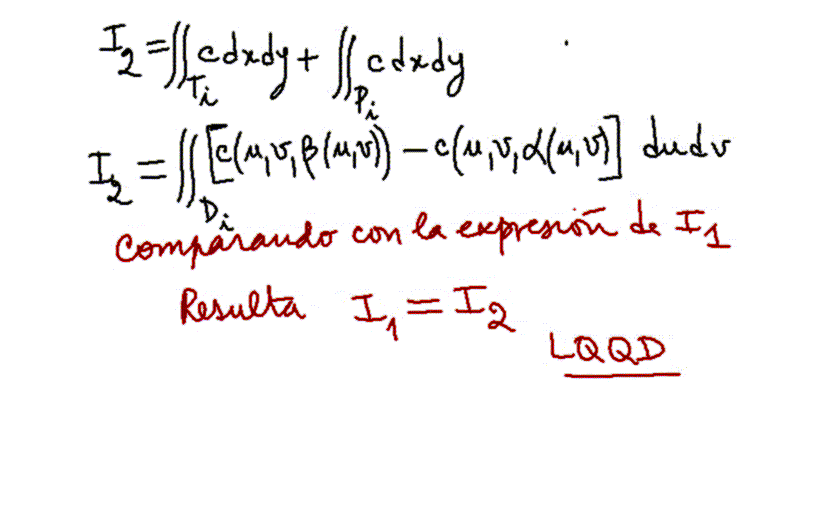 I₂ = ∬_{Tᵢ} c dx dy + ∬_{Pᵢ} c dx dy
I₂ = ∬_{Dᵢ} [c(u,v,β(u,v)) − c(u,v,α(u,v)] du dv
Comparando con la expresión de I₁
Resulta I₁ = I₂
LQQD